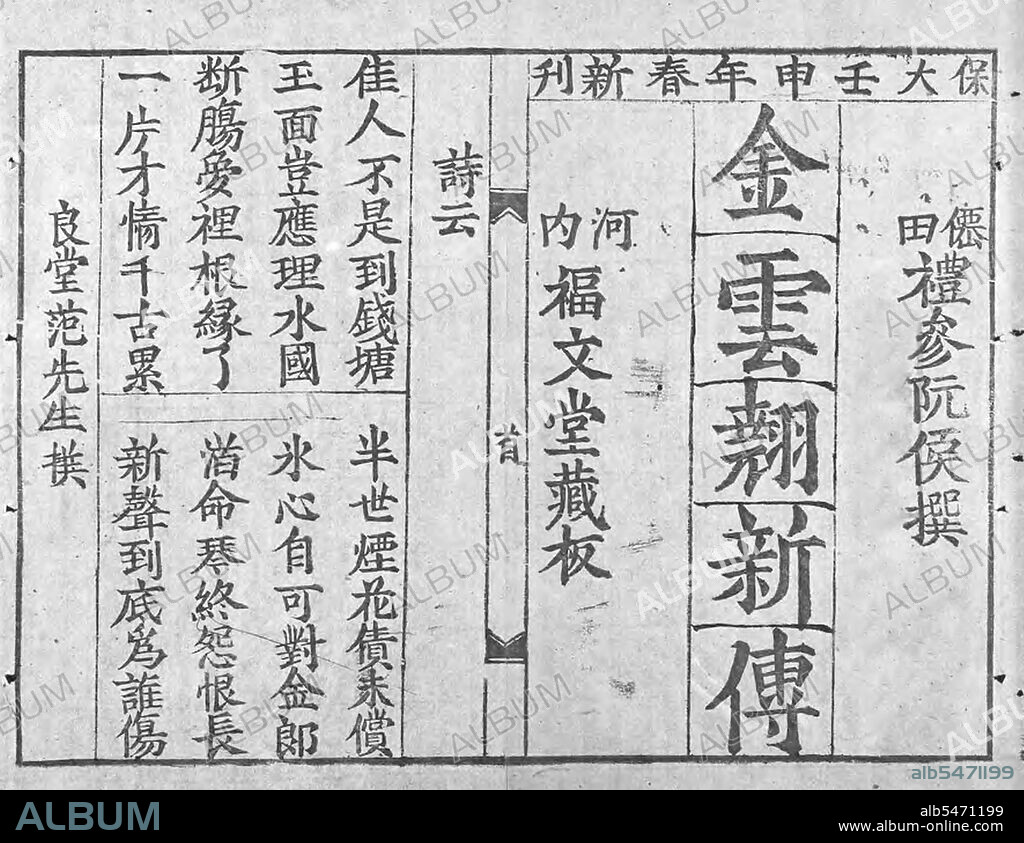 保大壬申年春新刊
僊田禮參阮侯撰
金雲翹新傳
河內福文堂藏板
首
詩云
佳人不是到錢塘
半世煙花債未償
玉面豈應理水國
氷心自可對金郎
断膓愛裡根縁了
命琴終怨恨長
一片才情千古累
新聲到底爲誰傷
良堂范先生撰
alb5471199
ALBUM
alb5471199
www.album-online.com